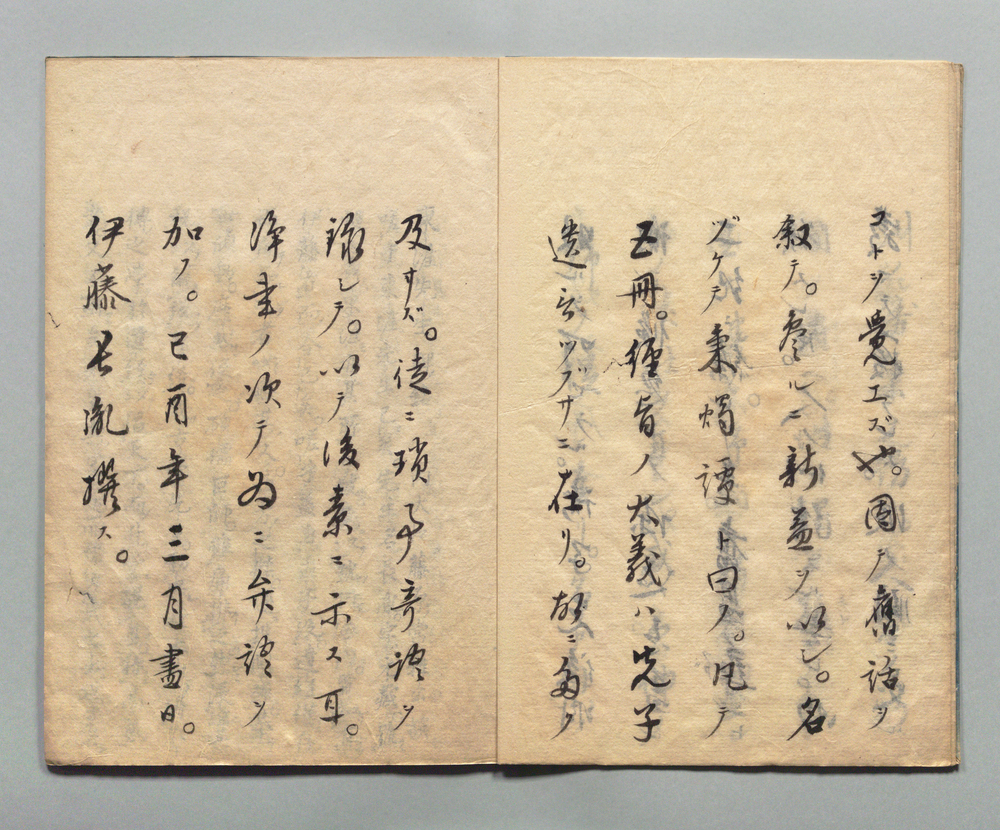 コトヲ覺エズや。因テ舊話ヲ
叙テ。参ルニ新益ヲ以シ。名
ヅケテ秉燭譚ト曰ノ。凡テ
五冊。經旨ノ大義ハ先子
遺言ツブサニ。在リ。故ニ多ク
及サズ。徒ニ瑣事奇談ヲ
録シテ。以テ後素ニ示ス耳。
筆ノ次テ為ニ弁語ヲ
加フ。己酉年三月盡日。
伊藤長胤撰ス。